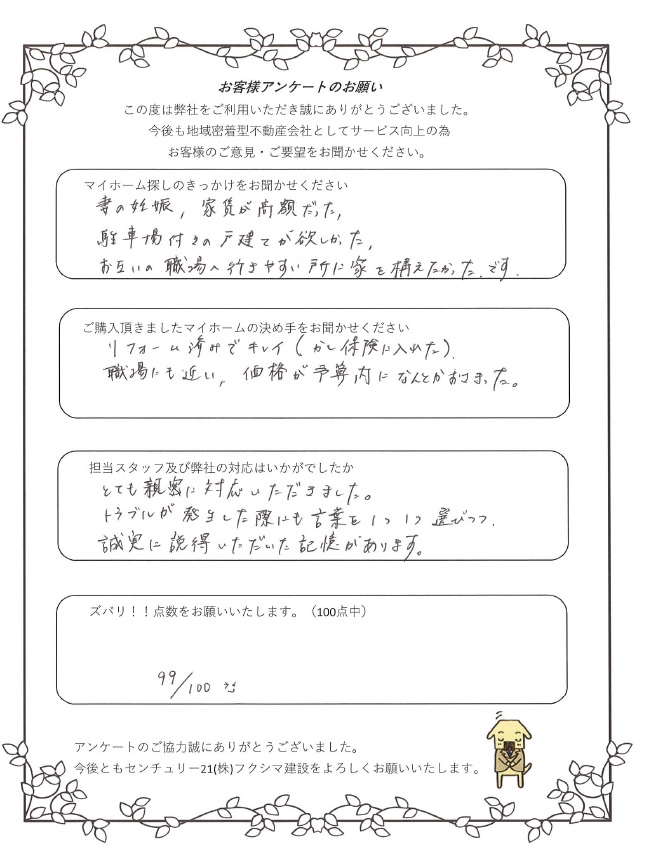 お客様アンケートのお願い
この度は弊社をご利用いただき誠にありがとうございました。
今後も地域密着型不動産会社としてサービス向上の為
お客様のご意見・ご要望をお聞かせください。
マイホーム探しのきっかけをお聞かせください
妻の妊娠, 家賃が高額だった,
駐車場付きの戸建てが欲しかった,
お互いの職場へ行きやすい所に家を構えたかった.です.
ご購入頂きましたマイホームの決め手をお聞かせください
リフォーム済みでキレイ(かし保険に入れた).
職場にも近い, 価格が予算内になんとかおさまった。
担当スタッフ及び弊社の対応はいかがでしたか
とても親密に対応いただきました。
トラブルが発生した際にも言葉を1つ1つ選びつつ.
誠実に説得いただいた記憶があります。
ズバリ！！点数をお願いいたします。（100点中）
99/100 点
アンケートのご協力誠にありがとうございました。
今後ともセンチュリー21(株)フクシマ建設をよろしくお願いいたします。